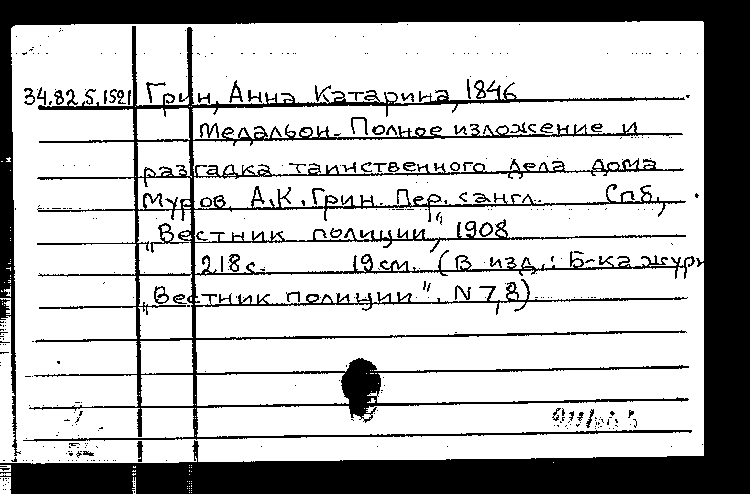 34.82.5.1521 Грин, Анна Катарина, 1846
Медальон. Полное изложение и
разгадка таинственного дела дома
Муров. А.К. Грин. Пер. с англ. Спб.,
„Вестник полиции“, 1908
218 с. 19 см. (В изд.: Б-ка журн
„Вестник полиции“. N 7,8)